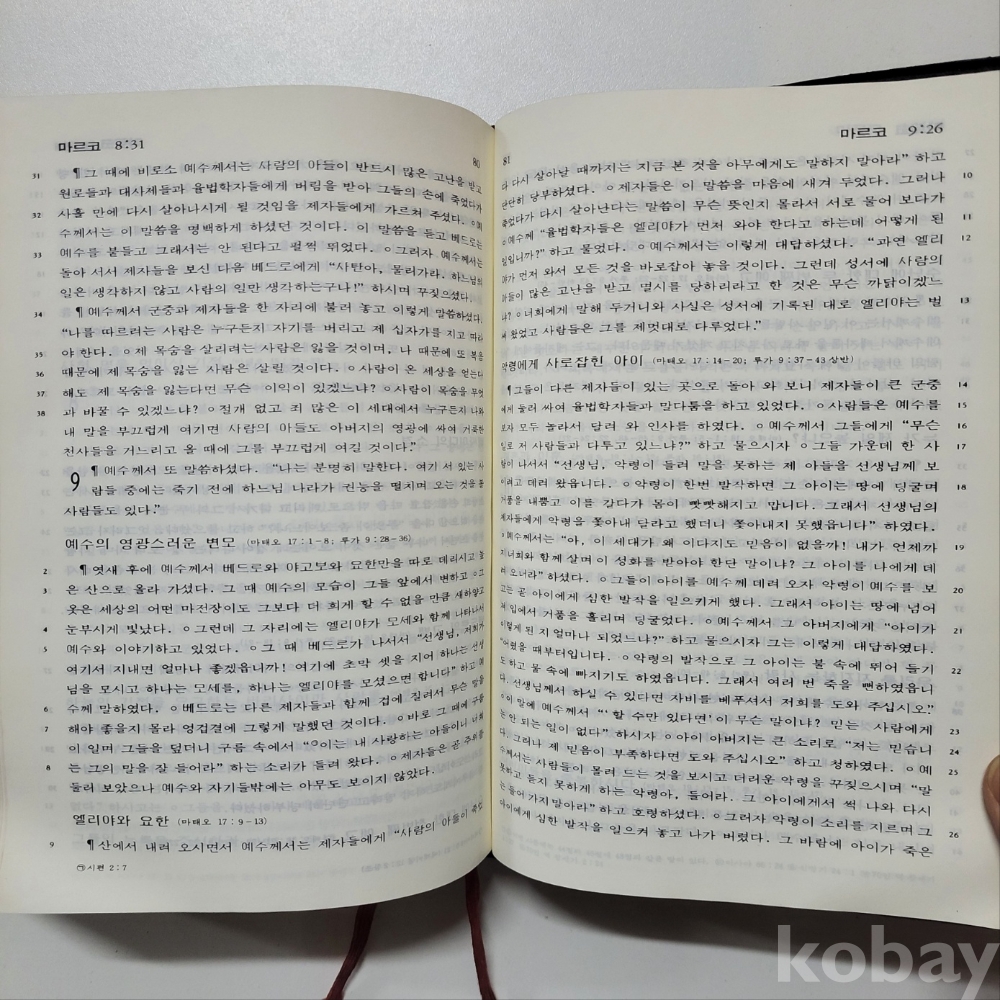 마르코 8:31
80
31 ¶그 때에 비로소 예수께서는 사람의 아들이 반드시 많은 고난을 받고
원로들과 대사제들과 율법학자들에게 버림을 받아 그들의 손에 죽었다가
32 사흘 만에 다시 살아나시게 될 것임을 제자들에게 가르쳐 주셨다. ○예
수께서는 이 말씀을 명백하게 하셨던 것이다. 이 말씀을 듣고 베드로는
33 예수를 붙들고 그래서는 안 된다고 펄쩍 뛰었다. ○그러자 예수께서는
돌아 서서 제자들을 보신 다음 베드로에게 “사탄아, 물러가라. 하느님의
일은 생각하지 않고 사람의 일만 생각하는구나!” 하시며 꾸짖으셨다.
34 ¶예수께서 군중과 제자들을 한 자리에 불러 놓고 이렇게 말씀하셨다.
“나를 따르려는 사람은 누구든지 자기를 버리고 제 십자가를 지고 따라
35 야 한다. ○제 목숨을 살리려는 사람은 잃을 것이며, 나 때문에 또 복음
36 때문에 제 목숨을 잃는 사람은 살릴 것이다. ○사람이 온 세상을 얻는다
37 해도 제 목숨을 잃는다면 무슨 이익이 있겠느냐? ○사람이 목숨을 무엇
38 과 바꿀 수 있겠느냐? ○절개 없고 죄 많은 이 세대에서 누구든지 나와
내 말을 부끄럽게 여기면 사람의 아들도 아버지의 영광에 싸여 거룩한
천사들을 거느리고 올 때에 그를 부끄럽게 여길 것이다.”
9 ¶예수께서 또 말씀하셨다. “나는 분명히 말한다. 여기 서 있는 사
람들 중에는 죽기 전에 하느님 나라가 권능을 떨치며 오는 것을 볼
사람들도 있다.”
예수의 영광스러운 변모 (마태오 17:1-8; 루가 9:28-36)
2 ¶엿새 후에 예수께서 베드로와 야고보와 요한만을 따로 데리시고 높
3 은 산으로 올라 가셨다. 그 때 예수의 모습이 그들 앞에서 변하고 ○그
옷은 세상의 어떤 마전장이도 그보다 더 희게 할 수 없을 만큼 새하얗고
4 눈부시게 빛났다. ○그런데 그 자리에는 엘리야가 모세와 함께 나타나서
5 예수와 이야기하고 있었다. ○그 때 베드로가 나서서 “선생님, 저희가
여기서 지내면 얼마나 좋겠읍니까! 여기에 초막 셋을 지어 하나는 선생
님을 모시고 하나는 모세를, 하나는 엘리야를 모셨으면 합니다” 하고 예
6 수께 말하였다. ○베드로는 다른 제자들과 함께 겁에 질려서 무슨 말을
7 해야 좋을지 몰라 엉겁결에 그렇게 말했던 것이다. ○바로 그 때에 구름
이 일며 그들을 덮더니 구름 속에서 “㉠이는 내 사랑하는 아들이니 너희
8 는 그의 말을 잘 들어라” 하는 소리가 들려 왔다. ○제자들은 곧 주위를
둘러 보았으나 예수와 자기들밖에는 아무도 보이지 않았다.
엘리야와 요한 (마태오 17:9-13)
9 ¶산에서 내려 오시면서 예수께서는 제자들에게 “사람의 아들이 죽었
㉠시편 2:7
81
마르코 9:26
다 다시 살아날 때까지는 지금 본 것을 아무에게도 말하지 말아라” 하고
단단히 당부하셨다. ○제자들은 이 말씀을 마음에 새겨 두었다. 그러나 10
죽었다가 다시 살아난다는 말씀이 무슨 뜻인지 몰라서 서로 물어 보다가
○예수께 “율법학자들은 엘리야가 먼저 와야 한다고 하는데 어떻게 된 11
일입니까?” 하고 물었다. ○예수께서는 이렇게 대답하셨다. “과연 엘리 12
야가 먼저 와서 모든 것을 바로잡아 놓을 것이다. 그런데 성서에 사람의
아들이 많은 고난을 받고 멸시를 당하리라고 한 것은 무슨 까닭이겠느
냐? ○너희에게 말해 두거니와 사실은 성서에 기록된 대로 엘리야는 벌 13
써 왔었고 사람들은 그를 제멋대로 다루었다.”
악령에게 사로잡힌 아이 (마태오 17:14-20; 루가 9:37-43 상반)
¶그들이 다른 제자들이 있는 곳으로 돌아 와 보니 제자들이 큰 군중 14
에게 둘러 싸여 율법학자들과 말다툼을 하고 있었다. ○사람들은 예수를 15
보자 모두 놀라서 달려 와 인사를 하였다. ○예수께서 그들에게 “무슨 16
일로 저 사람들과 다투고 있느냐?” 하고 물으시자 ○그들 가운데 한 사 17
람이 나서서 “선생님, 악령이 들려 말을 못하는 제 아들을 선생님께 보
이려고 데려 왔읍니다. ○악령이 한번 발작하면 그 아이는 땅에 딩굴며 18
거품을 내뿜고 이를 갈다가 몸이 빳빳해지고 맙니다. 그래서 선생님의
제자들에게 악령을 쫓아내 달라고 했더니 쫓아내지 못했읍니다” 하였다.
○예수께서는 “아, 이 세대가 왜 이다지도 믿음이 없을까! 내가 언제까 19
지 너희와 함께 살며 이 성화를 받아야 한단 말이냐? 그 아이를 나에게 데
려 오너라” 하셨다. ○그들이 아이를 예수께 데려 오자 악령이 예수를 보 20
고는 곧 아이에게 심한 발작을 일으키게 했다. 그래서 아이는 땅에 넘어
져 입에서 거품을 흘리며 딩굴었다. ○예수께서 그 아버지에게 “아이가 21
이렇게 된 지 얼마나 되었느냐?” 하고 물으시자 그는 이렇게 대답하였다.
“어렸을 때부터입니다. ○악령의 발작으로 그 아이는 불 속에 뛰어 들기 22
도 하고 물 속에 빠지기도 하였읍니다. 그래서 여러 번 죽을 뻔하였읍니
다. 선생님께서 하실 수 있다면 자비를 베푸셔서 저희를 도와 주십시오.”
○이 말에 예수께서 “‘할 수만 있다면’이 무슨 말이냐? 믿는 사람에게 23
는 안 되는 일이 없다” 하시자 ○아이 아버지는 큰 소리로 “저는 믿습니 24
다. 그러나 제 믿음이 부족하다면 도와 주십시오” 하고 청하였다. ○예 25
수께서는 사람들이 몰려 드는 것을 보시고 더러운 악령을 꾸짖으시며 “말
못하고 듣지 못하게 하는 악령아, 들어라. 그 아이에게서 썩 나와 다시
는 들어 가지 말아라” 하고 호령하셨다. ○그러자 악령이 소리를 지르며 그 26
아이에게 심한 발작을 일으켜 놓고 나가 버렸다. 그 바람에 아이가 죽은
kobay